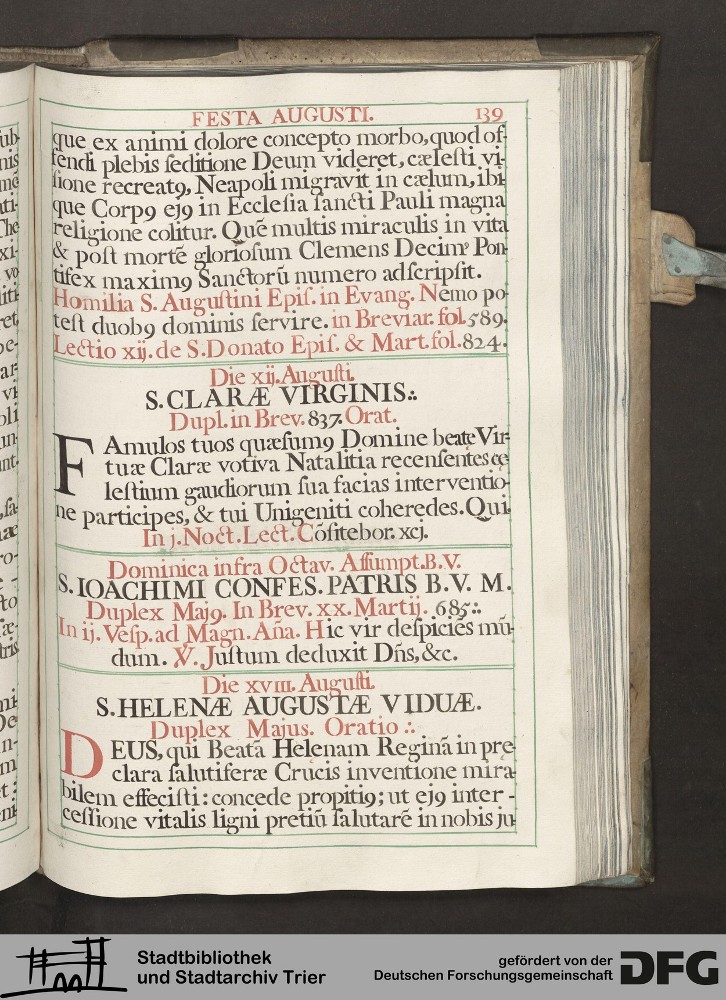 FESTA AUGUSTI. 139
que ex animi dolore concepto morbo, quod of-
fendi plebis ſeditione Deum videret, cæleſti vi-
ſione recreatꝯ, Neapoli migravit in cælum, ibi-
que Corpꝯ ejꝯ in Eccleſia ſancti Pauli magna
religione colitur. Quẽ multis miraculis in vita
& poſt mortẽ glorioſum Clemens Decimꝰ Pon-
tifex maximꝯ Sanctorũ numero adſcripſit.
Homilia S. Auguſtini Epiſ. in Evang. Nemo po-
teſt duobꝯ dominis ſervire. in Breviar. fol. 589.
Lectio xij. de S. Donato Epiſ. & Mart. fol. 824.
Die xij. Auguſti.
S. CLARÆ VIRGINIS.:.
Dupl. in Brev. 837. Orat.
FAmulos tuos quæſumꝯ Domine beatę Vir-
tuæ Claræ votiva Natalitia recenſentes cę-
leſtium gaudiorum ſua facias interventio-
ne participes, & tui Unigeniti coheredes. Qui.
In j. Noct. Lect. Cõfitebor. xcj.
Dominica infra Octav. Aſſumpt. B. V.
S. IOACHIMI CONFES. PATRIS B. V. M.
Duplex Majꝯ. In Brev. xx. Martij. 685.:.
In ij. Veſp. ad Magn. Aña. Hic vir deſpiciẽs mũ-
dum. ℣. Juſtum deduxit Dñs, &c.
Die xviii. Auguſti.
S. HELENÆ AUGUSTÆ VIDUÆ.
Duplex Majus. Oratio.:.
DEUS, qui Beatã Helenam Reginã in præ-
clara ſalutiferæ Crucis inventione mira-
bilem effeciſti: concede propitiꝯ; ut ejꝯ inter-
ceſſione vitalis ligni pretiũ ſalutarẽ in nobis ju-
Stadtbibliothek
und Stadtarchiv Trier
gefördert von der
Deutschen Forschungsgemeinschaft
DFG